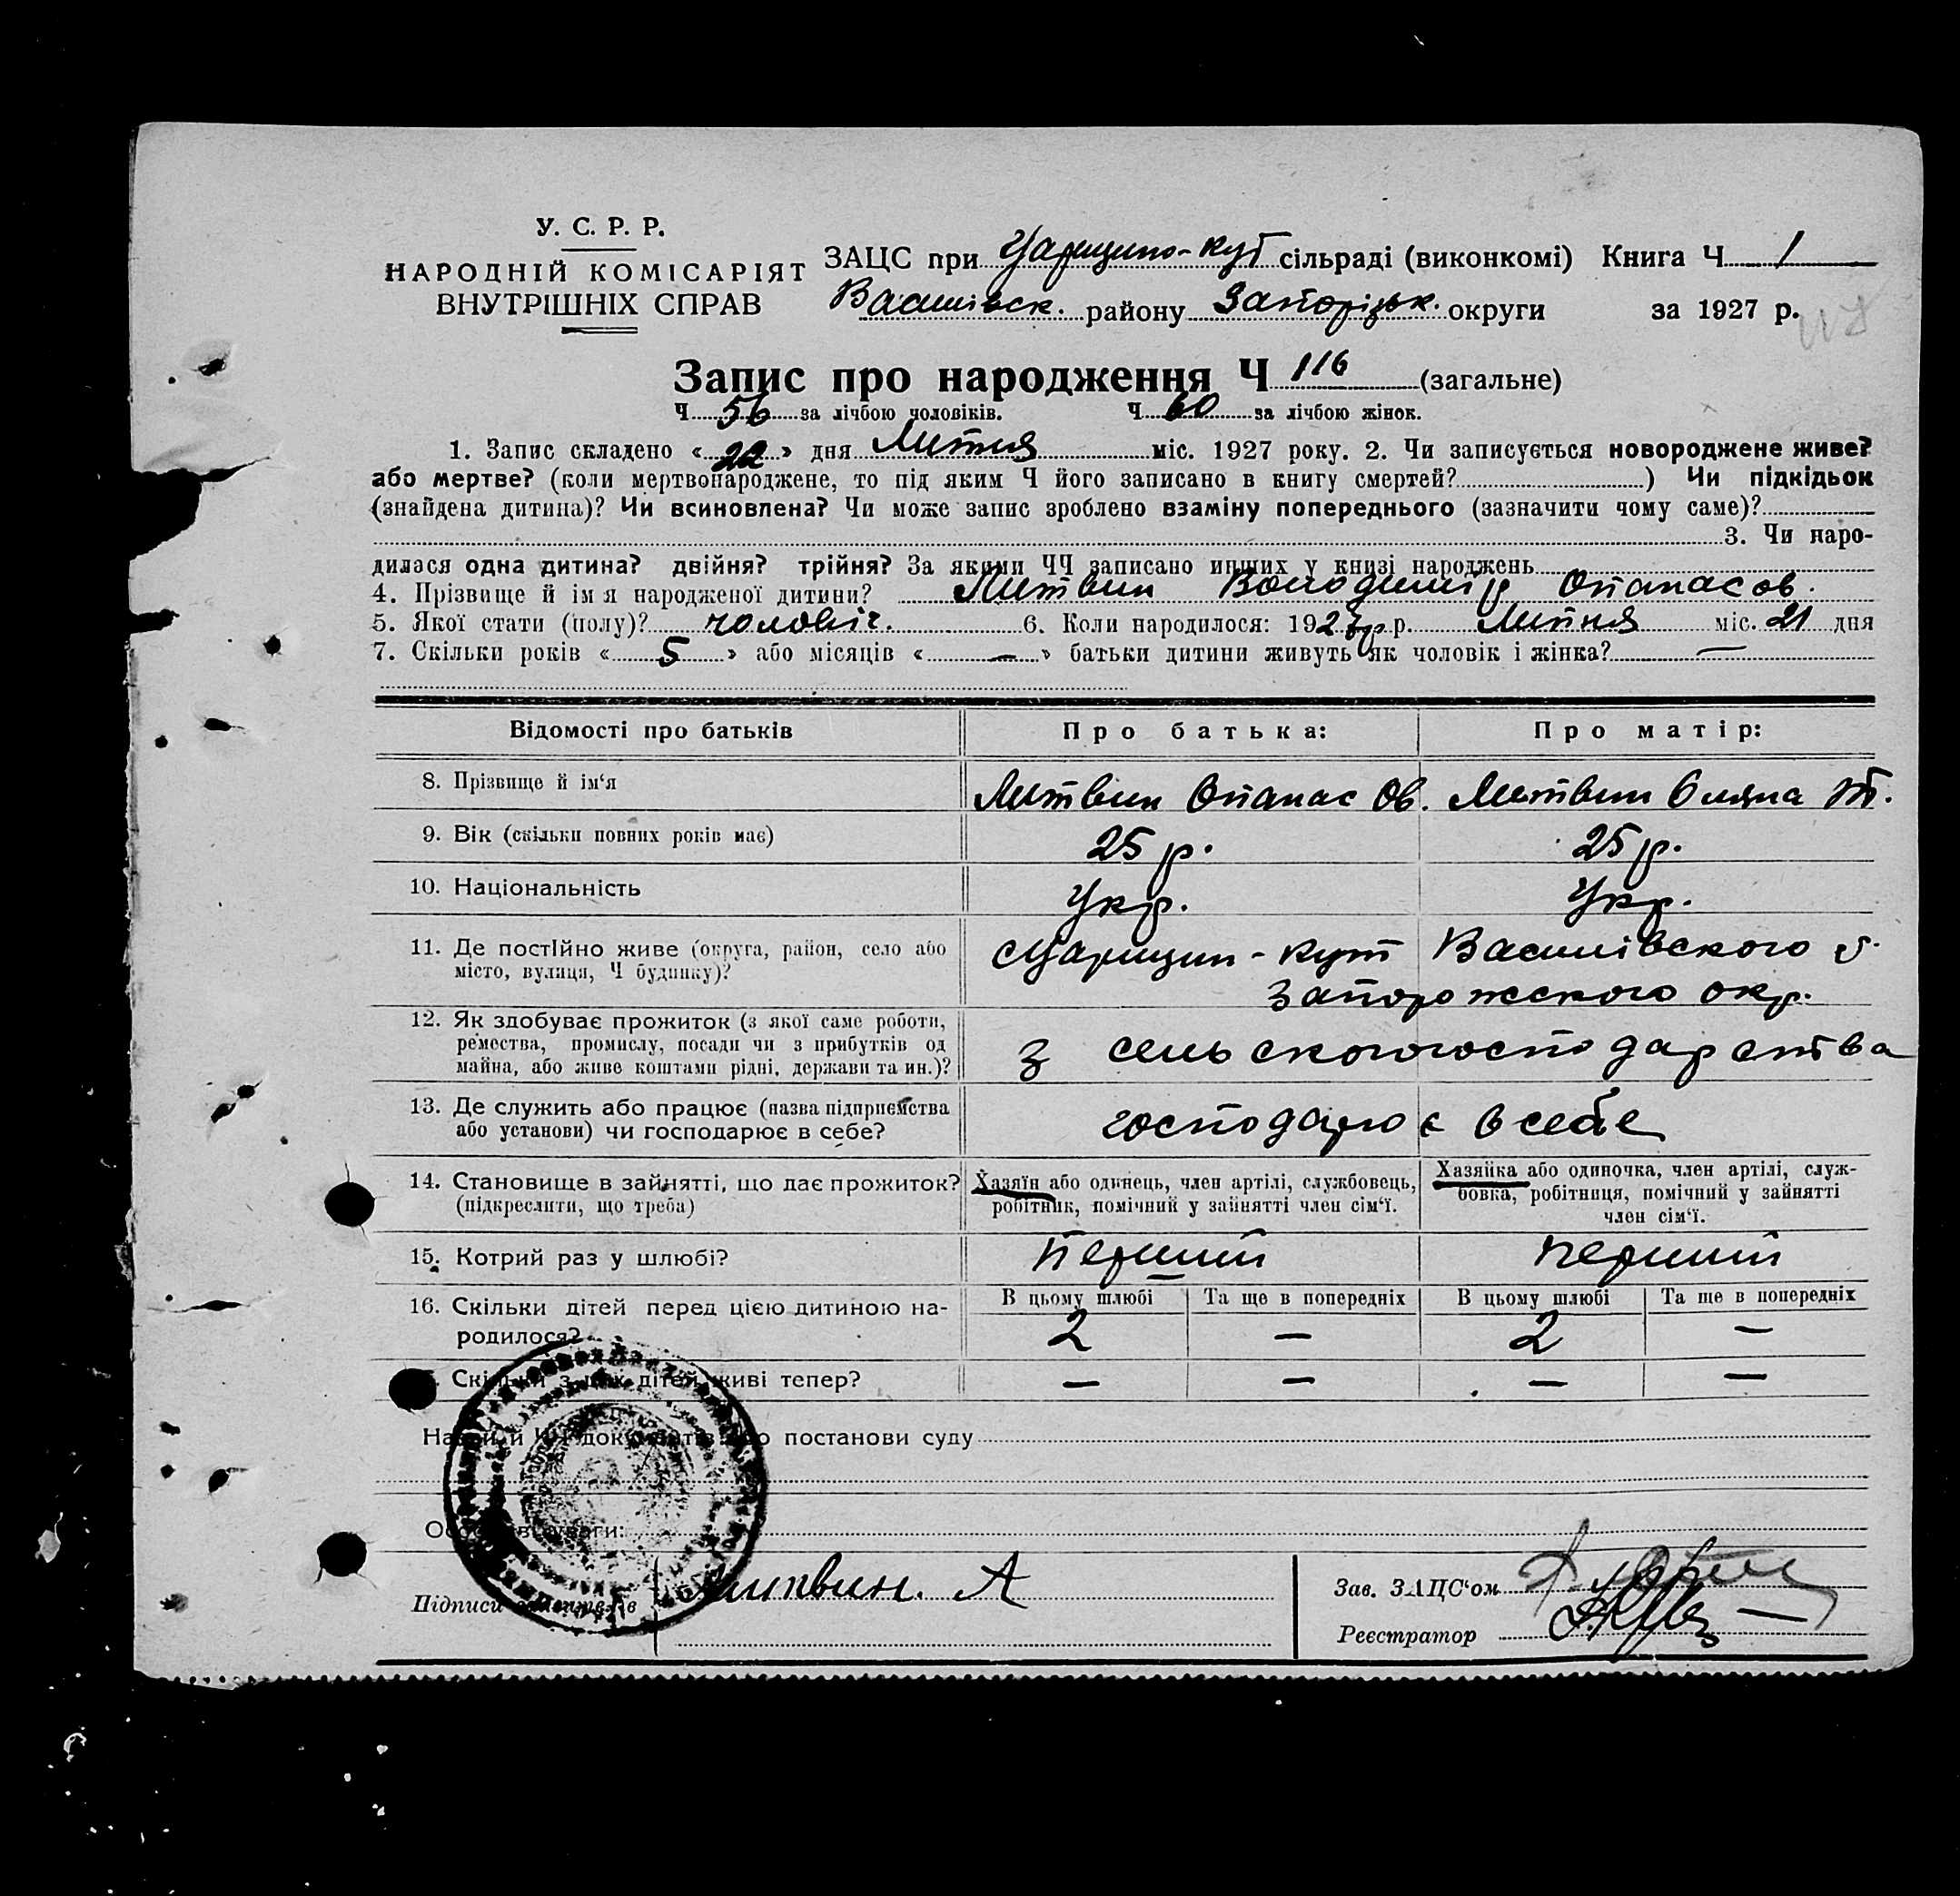 У. С. Р. Р.
НАРОДНІЙ КОМІСАРІЯТ
ВНУТРІШНІХ СПРАВ
ЗАЦС при Царицино-Кут сільраді (виконкомі) Книга Ч 1
Василівськ. району Запорізьк. округи за 1927 р.
Запис про народження Ч 116 (загальне)
Ч 56 за лічбою чоловіків. Ч 60 за лічбою жінок.
1. Запис складено « 22 » дня Липня міс. 1927 року. 2. Чи записується новороджене живе?
або мертве? (коли мертвонароджене, то під яким Ч його записано в книгу смертей? ) Чи підкідьок
(знайдена дитина)? Чи всиновлена? Чи може запис зроблено взаміну попереднього (зазначити чому саме)?
3. Чи наро-
дилася одна дитина? двійня? трійня? За якими ЧЧ записано инших у книзі народжень
4. Прізвище й ім'я народженої дитини? Литвин Володимір Опанасов.
5. Якої стати (полу)? чоловіч. 6. Коли народилося: 1927 р. Липня міс. 21 дня
7. Скільки років « 5 » або місяців « — » батьки дитини живуть як чоловік і жінка? —
Відомості про батьків
Про батька:
Про матір:
8. Прізвище й ім'я
Литвин Опанас Ов.
Литвин Оляна
9. Вік (скільки повних років має)
25 р.
25 р.
10. Національність
Укр.
Укр.
11. Де постійно живе (округа, район, село або
місто, вулиця, Ч будинку)?
Царицин-Кут Василівского р.
Запорожского окр.
12. Як здобуває прожиток (з якої саме роботи,
ремества, промислу, посади чи з прибутків од
майна, або живе коштами рідні, держави та ин.)?
З сельскогогосподарства
13. Де служить або працює (назва підприємства
або установи) чи господарює в себе?
господарює в себе
14. Становище в зайнятті, що дає прожиток?
(підкреслити, що треба)
Хазяїн або одинець, член артілі, службовець,
робітник, помічний у зайнятті член сім'ї.
Хазяйка або одиночка, член артілі, служ-
бовка, робітниця, помічний у зайнятті
член сім'ї.
15. Котрий раз у шлюбі?
перший
перший
16. Скільки дітей перед цією дитиною на-
родилося?
В цьому шлюбі Та ще в попередніх В цьому шлюбі Та ще в попередніх
2 — 2 —
Скільки з них дітей живі тепер?
— — — —
Назви й ЧЧ документів або постанови суду
Особливі уваги:
Підписи заявителів
Литвин. А
Зав. ЗАЦС'ом
Реєстратор